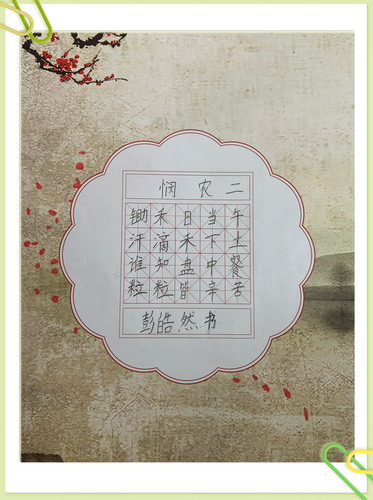 悯农二
锄禾日当午
汗滴禾下土
谁知盘中餐
粒粒皆辛苦
彭皓然书